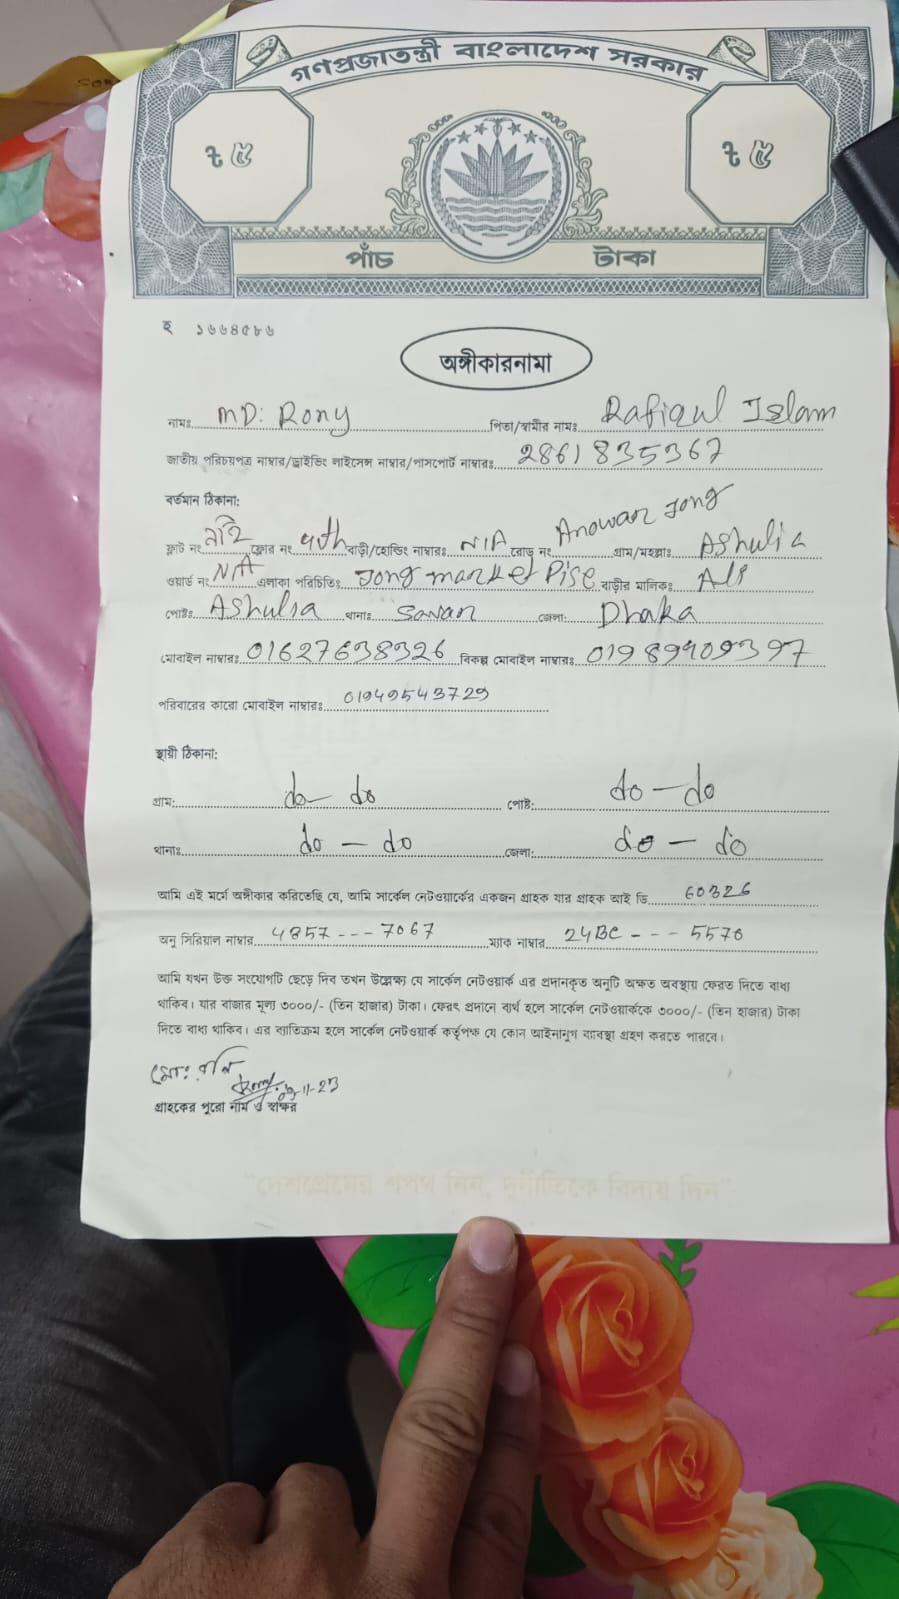 গণপ্রজাতন্ত্রী বাংলাদেশ সরকার
৳ ৫ ৳ ৫
পাঁচ টাকা
হ ১৬৬৪৫৮৬
অঙ্গীকারনামা
নামঃ MD: Rony পিতা/স্বামীর নামঃ Rafiqul Islam
জাতীয় পরিচয়পত্র নাম্বার/ড্রাইভিং লাইসেন্স নাম্বার/পাসপোর্ট নাম্বারঃ 2861835367
বর্তমান ঠিকানা:
ফ্লাট নং ফ্লোর নং 4th বাড়ী/হোল্ডিং নাম্বারঃ N/A রোড নং Anowar Jong গ্রাম/মহল্লাঃ Ashulia
ওয়ার্ড নং N/A এলাকা পরিচিতিঃ Jong market বাড়ীর মালিকঃ Ali
পোষ্টঃ Ashulia থানাঃ Savar জেলা: Dhaka
মোবাইল নাম্বারঃ 01627638326 বিকল্প মোবাইল নাম্বারঃ
পরিবারের কারো মোবাইল নাম্বারঃ 01949543729
স্থায়ী ঠিকানা:
গ্রাম: do - do পোষ্ট: do - do
থানাঃ do - do জেলা: do - do
আমি এই মর্মে অঙ্গীকার করিতেছি যে, আমি সার্কেল নেটওয়ার্কের একজন গ্রাহক যার গ্রাহক আই ডি 60326
অনু সিরিয়াল নাম্বার 4857 --- 7067 ম্যাক নাম্বার 24BC - - - 5570
আমি যখন উক্ত সংযোগটি ছেড়ে দিব তখন উল্লেক্ষ্য যে সার্কেল নেটওয়ার্ক এর প্রদানকৃত অনুটি অক্ষত অবস্থায় ফেরত দিতে বাধ্য
থাকিব। যার বাজার মূল্য ৩০০০/- (তিন হাজার) টাকা। ফেরৎ প্রদানে ব্যর্থ হলে সার্কেল নেটওয়ার্ককে ৩০০০/- (তিন হাজার) টাকা
দিতে বাধ্য থাকিব। এর ব্যাতিক্রম হলে সার্কেল নেটওয়ার্ক কর্তৃপক্ষ যে কোন আইনানুগ ব্যাবস্থা গ্রহণ করতে পারবে।
মোঃ রনি
Rony
গ্রাহকের পুরো নাম ও স্বাক্ষর
"দেশপ্রেমের শপথ নিন, দুর্নীতিকে বিদায় দিন"